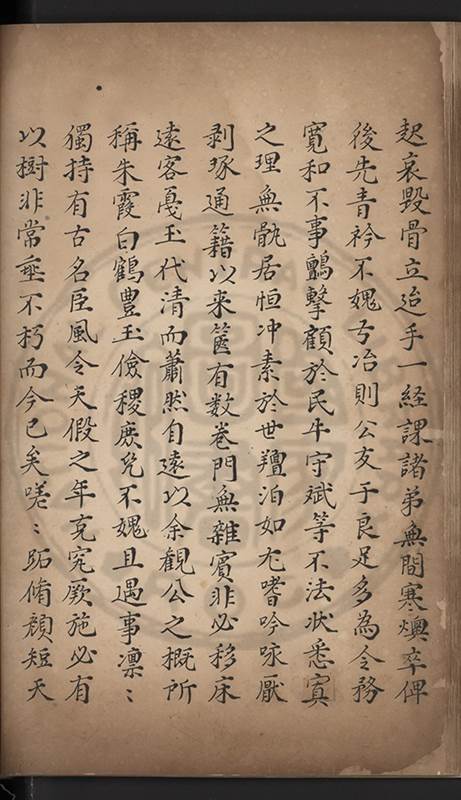 起哀毀骨立迨手一經課諸弟無間寒燠卒俾
後先青衿不媿弓冶則公友于良足多為令務
寬和不事鸇擊顧於民牛守斌等不法狀悉寘
之理無骫居恒冲素於世羶泊如尤嗜吟咏厭
剥琢通籍以来篋有数卷門無雜賓非必移床
遠客戞玉代清而蕭然自遠以余觀公之概所
稱朱霞白鶴豐玉儉稷庶㡬不媿且遇事凛〻
獨持有古名臣風令天假之年克究厥施必有
以樹非常垂不朽而今已矣嗟〻跖脩顔短天